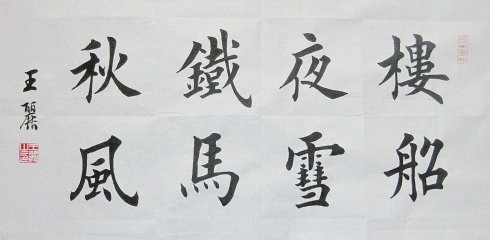 樓船
夜雪
鐵馬
秋風
王麗